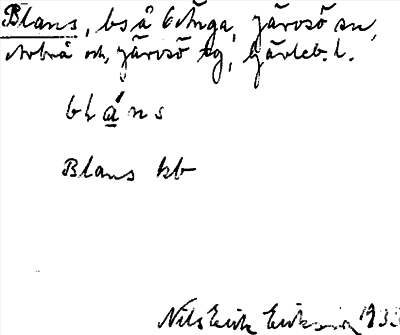 Blans, bs å 6 Änga, Järvsö sn,
Arbrå och Järvsö tg, Gävleb. l.
blåns
Blans kb
Nils Erik Eriksson 1933